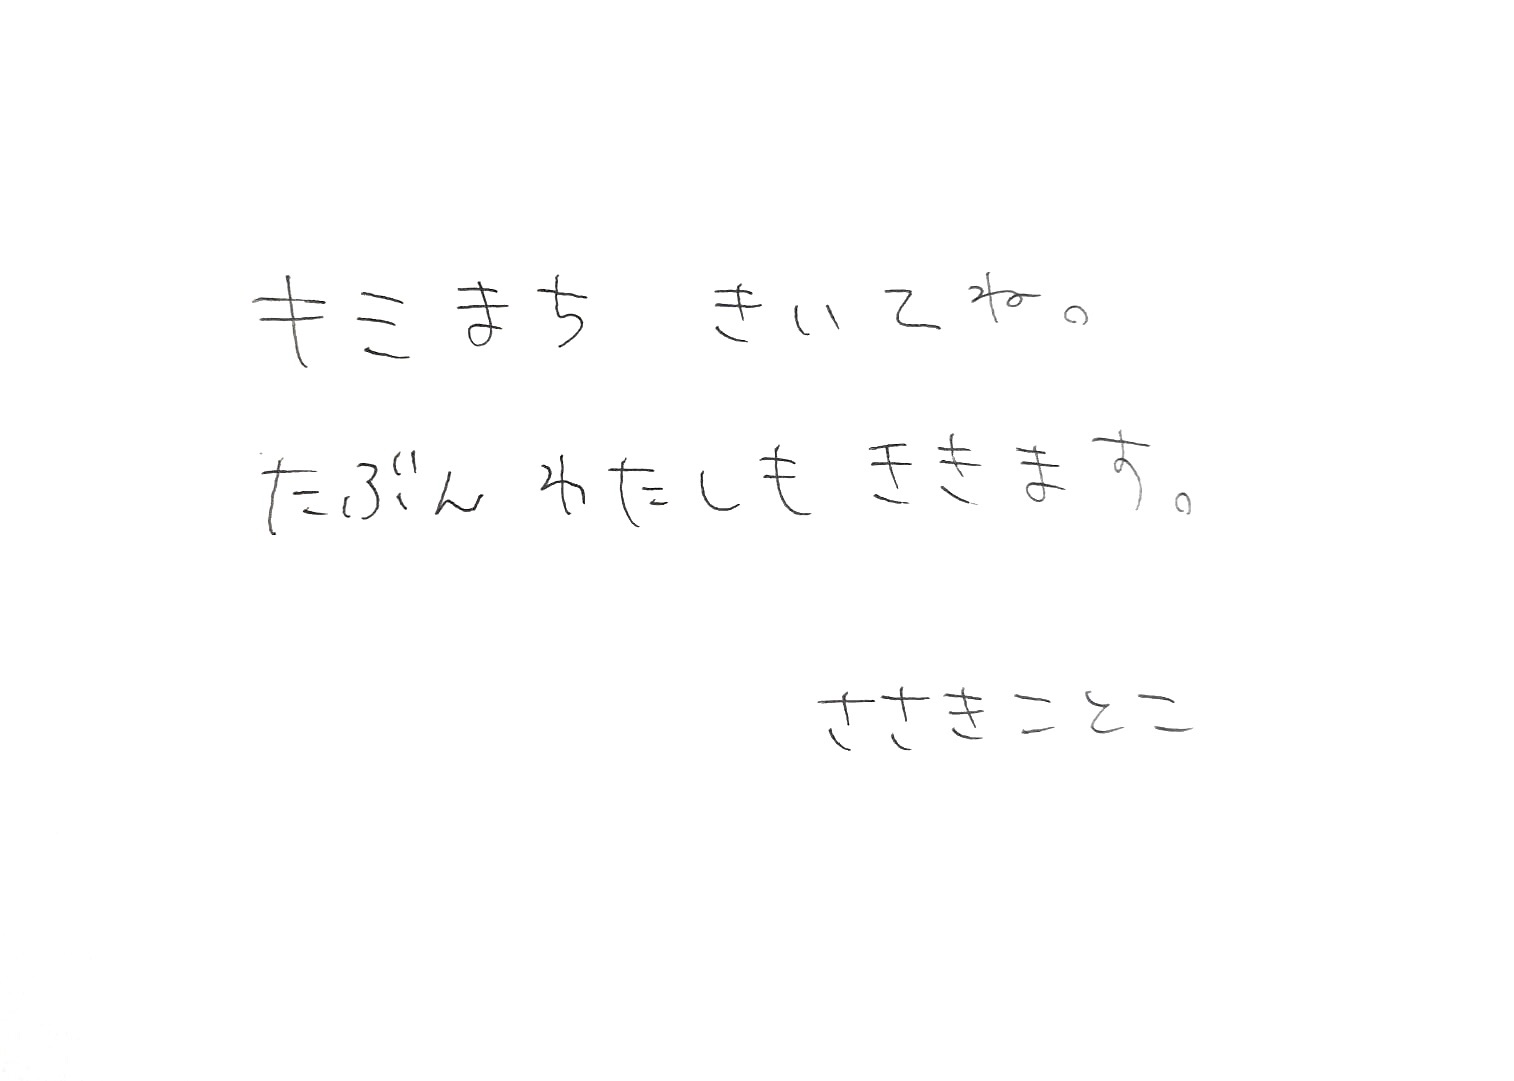 キミまち きいてね。
たぶん わたしも ききます。
ささきことこ